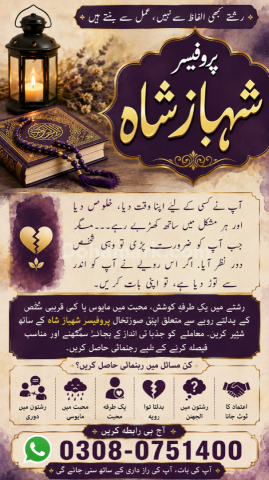 رشتے کبھی الفاظ سے نہیں، عمل سے بنتے ہیں
پروفیسر
شہباز شاہ
آپ نے کسی کے لیئے اپنا وقت دیا، خلوص دیا
اور ہر مشکل میں ساتھ کھڑے رہے... مگر
جب آپ کو ضرورت پڑی تو وہی شخص
دور نظر آیا۔ اگر اس رویے نے آپ کو اندر
سے توڑ دیا ہے، تو اپنی بات کریں۔
رشتے میں یک طرفہ کوشش، محبت میں مایوسی یا کسی قریبی شخص
کے بدلتے رویے سے متعلق اپنی صورتحال پروفیسر شہباز شاہ کے ساتھ
شیئر کریں۔ معاملے کو جذباتی انداز کے بجائے سمجھنے اور مناسب
فیصلہ کرنے کے لیے رہنمائی حاصل کریں۔
کن مسائل میں رہنمائی حاصل کریں؟
اعتماد کا ٹوٹ جانا
رشتوں میں الجھن
بدلتا ہوا رویہ
یک طرفہ محبت
محبت میں مایوسی
رشتوں میں دوری
آج ہی رابطہ کریں
0308-0751400
آپ کی بات، آپ کی راز داری کے ساتھ سنی جائے گی